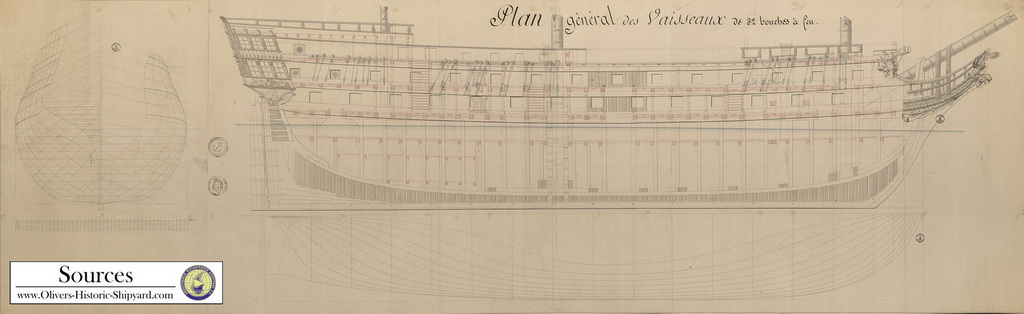 Plan général des Vaisseaux de 82 bouches à feu.
Sources
www.Olivers-Historic-Shipyard.com